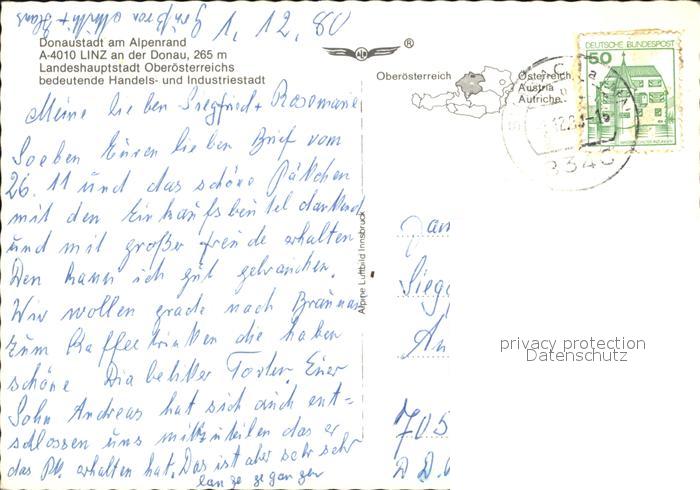 Grüße von Mutti + Hans
1. 12. 80
Donaustadt am Alpenrand
A-4010 LINZ an der Donau, 265 m
Landeshauptstadt Oberösterreichs
bedeutende Handels- und Industriestadt
®
Oberösterreich
Österreich
Austria
Autriche
DEUTSCHE BUNDESPOST
50
3340
Meine lieben Siegfried + Rosemarie
Soeben Euren lieben Brief vom
26. 11 und das schöne Päkchen
mit den Einkaufsbeutel dankend
und mit großer freude erhalten
Den kann ich gut gebrauchen.
Wir wollen grade nach Braunau
zum Kaffee trinken die haben
schöne Diabetiker Torten. Euer
Sohn Andreas hat sich auch ent=
schlossen uns mitzuteilen das er
das Pk. erhalten hat. Das ist aber sehr sehr
lange gegangen
Alpine Luftbild Innsbruck
Fam
Sieg
An
705
D D.
privacy protection
Datenschutz